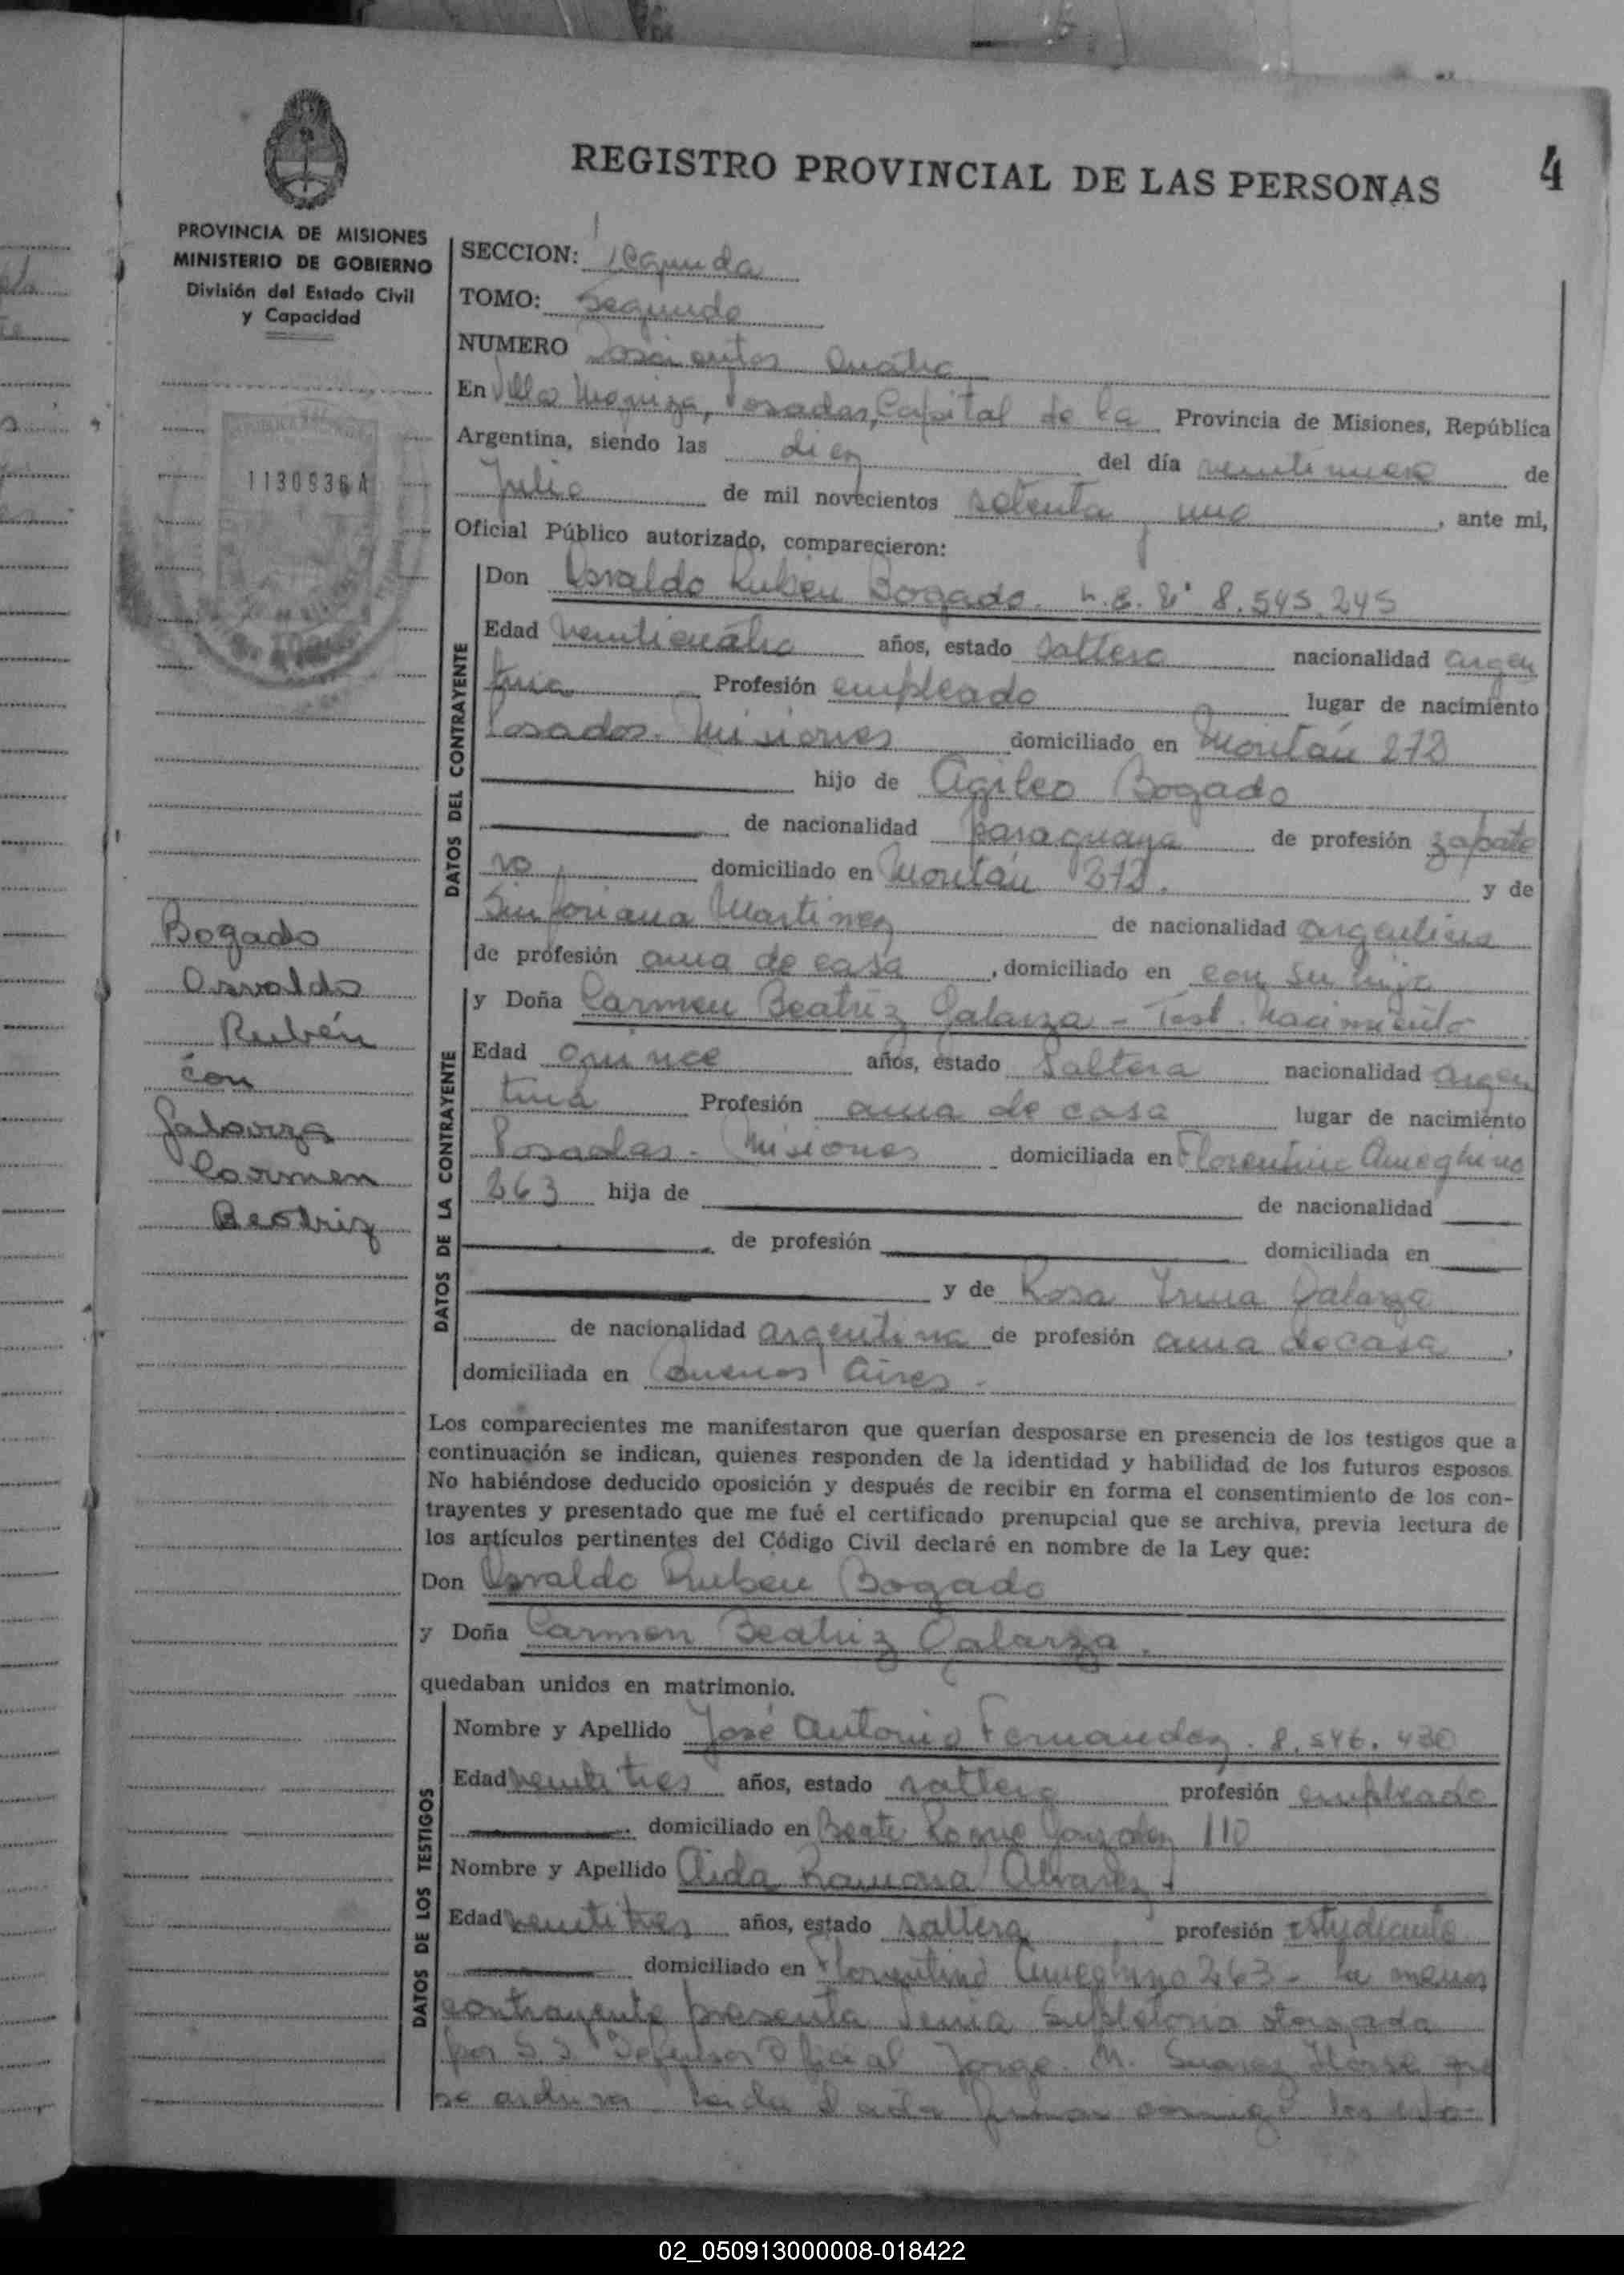 REGISTRO PROVINCIAL DE LAS PERSONAS
4
PROVINCIA DE MISIONES
MINISTERIO DE GOBIERNO
División del Estado Civil
y Capacidad
1130936A
Bogado
Osvaldo
Rubén
con
Galarza
Carmen
Beatriz
SECCION: Segunda
TOMO: Segundo
NUMERO Doscientos Cuatro
En Villa Urquiza, Posadas, Capital de la Provincia de Misiones, República
Argentina, siendo las diez del día veintinueve de
Julio de mil novecientos setenta y uno, ante mi,
Oficial Público autorizado, comparecieron:
DATOS DEL CONTRAYENTE
Don Osvaldo Ruben Bogado. L.E. Nº 8.545.245
Edad veinticuatro años, estado soltero nacionalidad argen
tina Profesión empleado lugar de nacimiento
Posadas. Misiones domiciliado en
hijo de Bogado
de nacionalidad paraguaya de profesión zapate
ro domiciliado en y de
Sinforiana Martinez de nacionalidad argentina
de profesión ama de casa, domiciliado en con su hijo
DATOS DE LA CONTRAYENTE
y Doña Carmen Beatriz Galarza - Test. Nacimiento
Edad quince años, estado soltera nacionalidad argen
tina Profesión ama de casa lugar de nacimiento
Posadas. Misiones domiciliada en Florentino Ameghino
263 hija de de nacionalidad
de profesión domiciliada en
y de Rosa Irma Galarza
de nacionalidad argentina de profesión ama de casa,
domiciliada en Buenos Aires.
Los comparecientes me manifestaron que querían desposarse en presencia de los testigos que a
continuación se indican, quienes responden de la identidad y habilidad de los futuros esposos.
No habiéndose deducido oposición y después de recibir en forma el consentimiento de los con-
trayentes y presentado que me fué el certificado prenupcial que se archiva, previa lectura de
los artículos pertinentes del Código Civil declaré en nombre de la Ley que:
Don Osvaldo Ruben Bogado
y Doña Carmen Beatriz Galarza.
quedaban unidos en matrimonio.
DATOS DE LOS TESTIGOS
Nombre y Apellido José Antonio Fernandez. 8.546.430
Edad veintitres años, estado soltero profesión empleado
domiciliado en Beato Roque Gonzalez 110
Nombre y Apellido Aida Ramona Alvarez
Edad veintitres años, estado soltera profesión estudiante
domiciliado en Florentino Ameghino 263 - La menor
contrayente presenta Venia Supletoria otorgada
por S.S. Defensor Oficial Jorge. M. Suarez que
se archiva. Leida el acta firman conmigo los
02_050913000008-018422